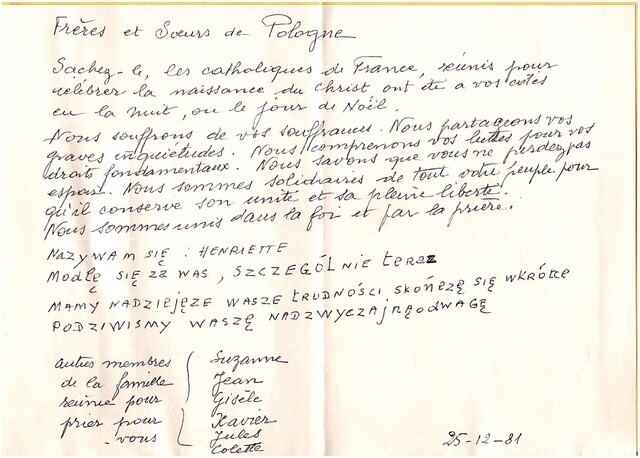 Frères et Sœurs de Pologne
Sachez-le, les catholiques de France, réunis pour
célébrer la naissance du Christ ont été a vos côtés
en la nuit, ou le jour de Noël.
Nous souffrons de vos souffrances. Nous partageons vos
graves inquiétudes. Nous comprenons vos luttes pour vos
droits fondamentaux. Nous savons que vous ne perdez pas
espoir. Nous sommes solidaires de tout votre peuple pour
qu'il conserve son unité et sa pleine liberté.
Nous sommes unis dans la foi et par la prière.
NAZYWAM SIĘ : HENRIETTE
MODLĘ SIĘ ZA WAS, SZCZEGÓLNIE teraz
MAMY NADZIEJĘZE WASZE tRUDNOŚCI SKOŃCZĘ SIĘ WKRÓtCE
PODZIWISMY WASZĘ NADZWYCZAJNĄODWAGĘ
autres membres
de la famille
réunie pour
prier pour
vous
Suzanne
Jean
Gisèle
Xavier
Jules
Colette
25-12-81